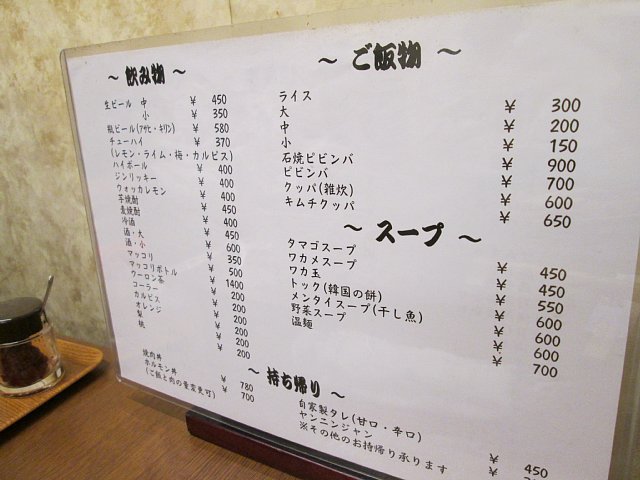 ～ 飲み物 ～
生ビール 中 ¥ 450
小 ¥ 350
瓶ビール(ｱｻﾋ・ｷﾘﾝ) ¥ 580
チューハイ ¥ 370
(レモン・ライム・梅・カルピス)
ハイボール ¥ 400
ジンリッキー ¥ 400
ウォッカレモン ¥ 400
芋焼酎 ¥ 400
麦焼酎 ¥ 450
冷酒 ¥ 400
酒・大 ¥ 450
酒・小 ¥ 600
マッコリ ¥ 350
マッコリボトル ¥ 500
ウーロン茶 ¥ 1400
コーラー ¥ 200
カルピス ¥ 200
オレンジ ¥ 200
梨 ¥ 200
桃 ¥ 200
～ ご飯物 ～
ライス
大 ¥ 300
中 ¥ 200
小 ¥ 150
石焼ビビンバ ¥ 900
ビビンバ ¥ 700
クッパ(雑炊) ¥ 600
キムチクッパ ¥ 650
～ スープ ～
タマゴスープ ¥ 450
ワカメスープ ¥ 450
ワカ玉 ¥ 550
トック(韓国の餅) ¥ 600
メンタイスープ(干し魚) ¥ 600
野菜スープ ¥ 600
温麺 ¥ 700
～ 持ち帰り ～
焼肉丼 ¥ 780
ホルモン丼 ¥ 700
(ご飯と肉の量変更可)
自家製タレ(甘口・辛口) ¥ 450
ヤンニンジャン ¥
※その他のお持帰り承ります